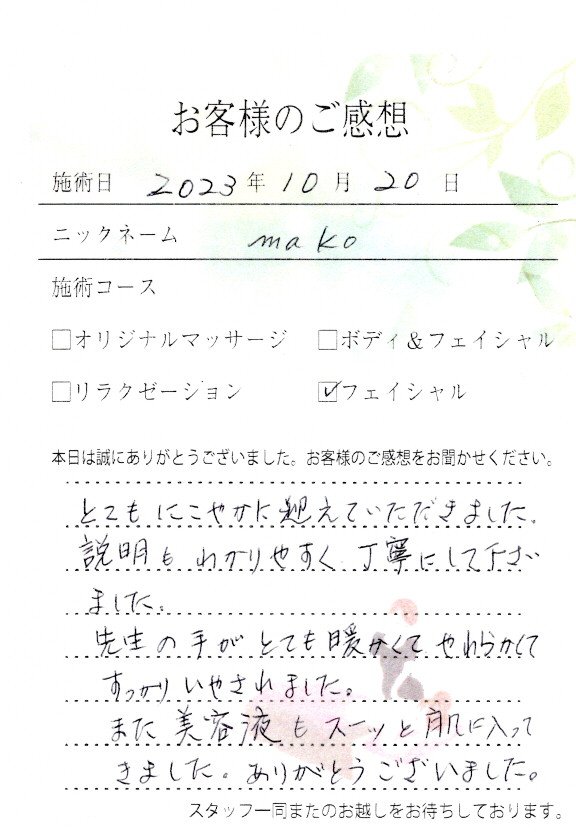 お客様のご感想
施術日 2023年10月20日
ニックネーム mako
施術コース
□オリジナルマッサージ □ボディ&フェイシャル
□リラクゼーション ☑フェイシャル
本日は誠にありがとうございました。お客様のご感想をお聞かせください。
とてもにこやかに迎えていただきました。
説明もわかりやすく丁寧にして下さい
ました。
先生の手がとても暖かくてやわらかくて
すっかりいやされました。
また美容液もスーッと肌に入って
きました。ありがとうございました。
スタッフ一同またのお越しをお待ちしております。